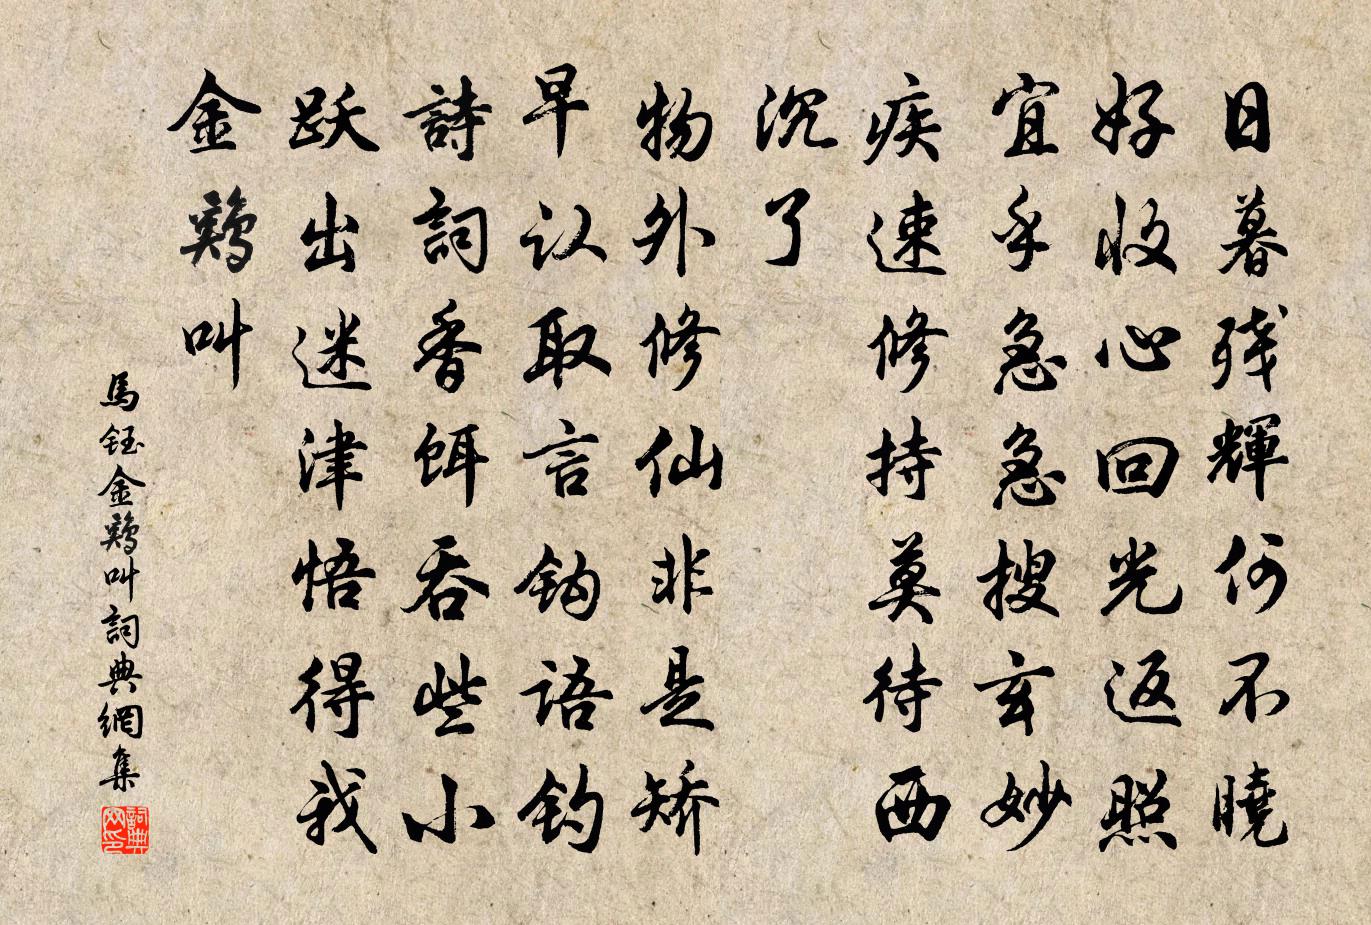 日暮残輝何不曉
好收心回光返照
宜乎急急搜玄妙
疾速修持莫待西
沉了
物外修仙非是矯
早认取言鈎語釣
詩詞香餌吞些小
跃出迷津悟得我
金鷄叫
馬鈺金鷄叫詞典網集
詞典網印